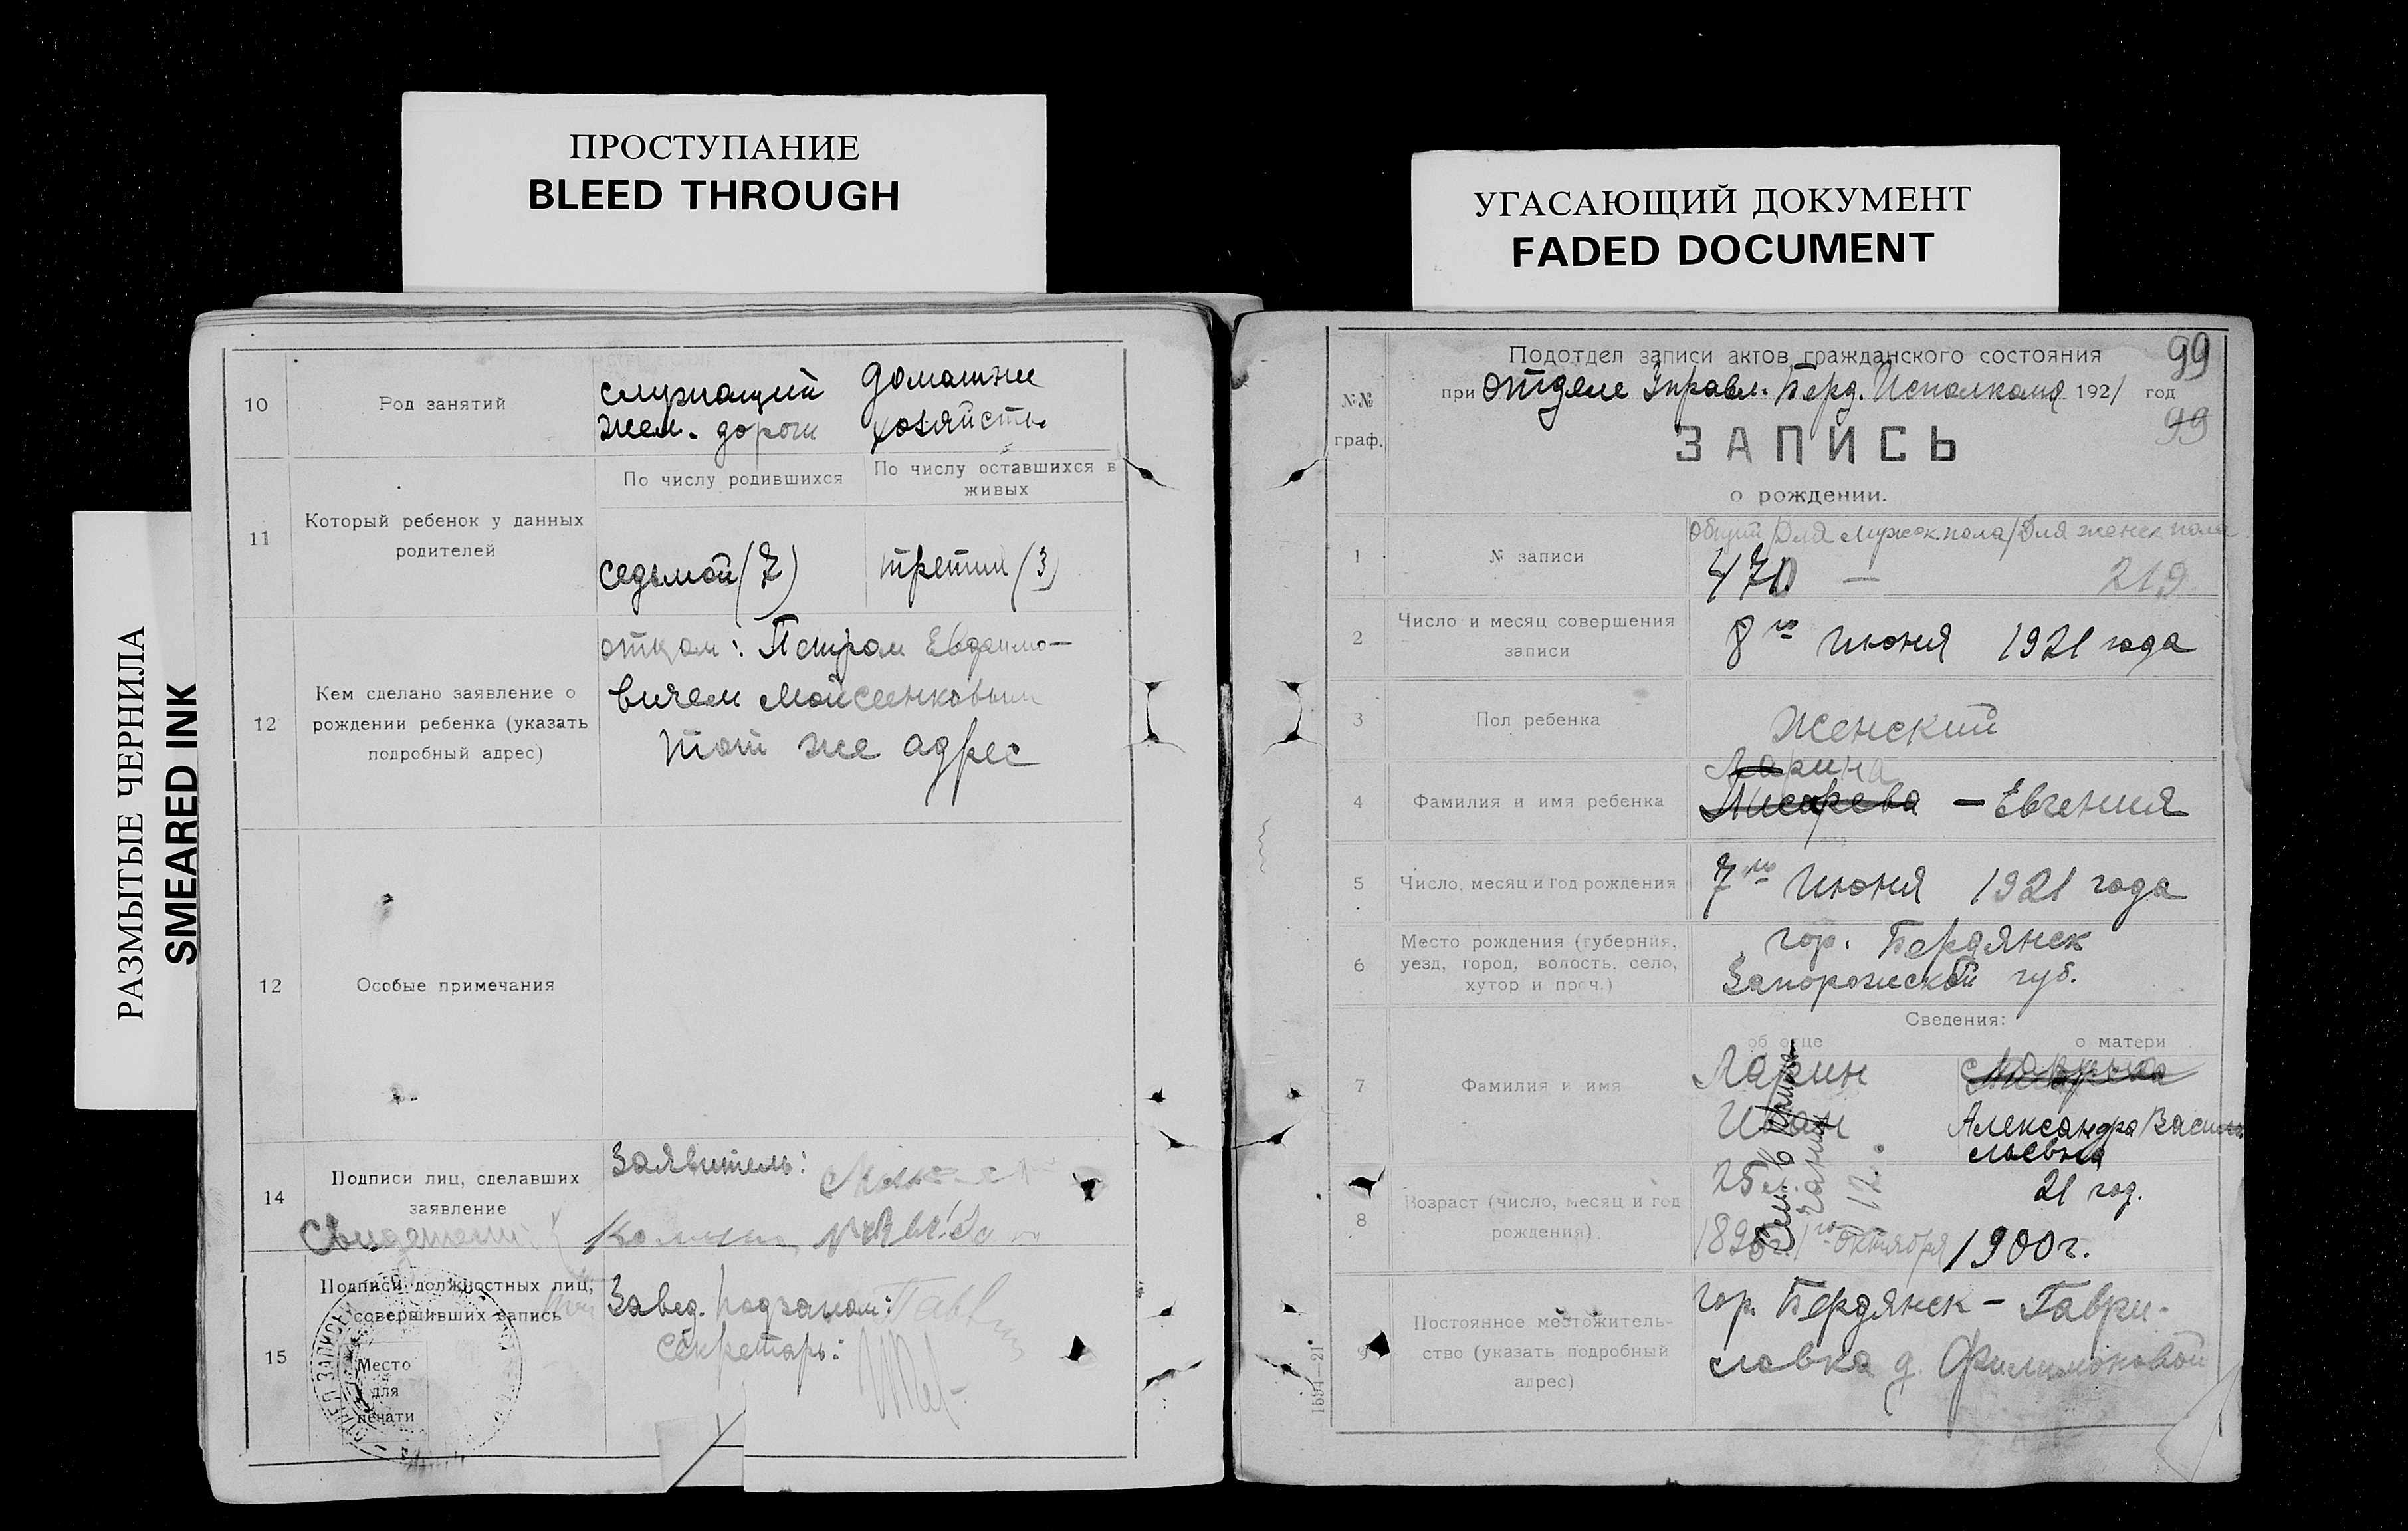 ПРОСТУПАНИЕ
BLEED THROUGH
УГАСАЮЩИЙ ДОКУМЕНТ
FADED DOCUMENT
РАЗМЫТЫЕ ЧЕРНИЛА
SMEARED INK
10
Род занятий
служащий
жел. дороги
домашнее
хозяйство
11
Который ребенок у данных
родителей
По числу родившихся
По числу оставшихся в
живых
седьмой (7)
третий (3)
12
Кем сделано заявление о
рождении ребенка (указать
подробный адрес)
отцом: Петром Евдоимо-
вичем Мойсеенковым
тот же адрес
12
Особые примечания
14
Подписи лиц, сделавших
заявление
Заявитель:
Свидетели:
15
Подписи должностных лиц,
совершивших запись
Место
для
печати
Завед. подзагом:
Секретарь:
99
Подотдел записи актов гражданского состояния
при отделе Управл. Берд. Исполкома 1921 год
99
№№
граф.
ЗАПИСЬ
о рождении.
1
№ записи
Общий/Для мужск пола/Для женск пола
470 — 219
2
Число и месяц совершения
записи
8го Июня 1921 года
3
Пол ребенка
Женский
4
Фамилия и имя ребенка
Ларина
— Евгения
5
Число, месяц и год рождения
7го Июня 1921 года
6
Место рождения (губерния,
уезд, город, волость, село,
хутор и проч.)
гор. Бердянск
Запорожской губ.
Сведения:
об отце
о матери
7
Фамилия и имя
Ларин
Иван
Александра Васи
льевна
8
Возраст (число, месяц и год
рождения)
25
21 год.
1го октября
1900г.
9
Постоянное местожитель-
ство (указать подробный
адрес)
гор. Бердянск – Гаври-
ловка д. Филимоновой
1594—21